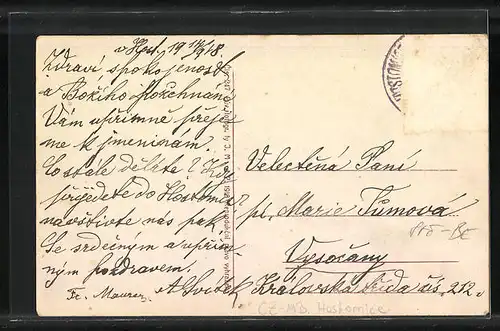 v Host. 19 14/9 18.
Zdraví, spokojenost
a Božího požehnání
Vám upřimně přeje
me k jmeninám.
Co stále děláte? Až
přijedete do Hostomic
navštivte nás pak.
Se srdečným a upřim
ným pozdravem.
Fr. Maurer
Velectěná Paní
pí. Marie Tůmová
Vysočany
Královská třída čís. 212.
CZ-Mb. Hostomice